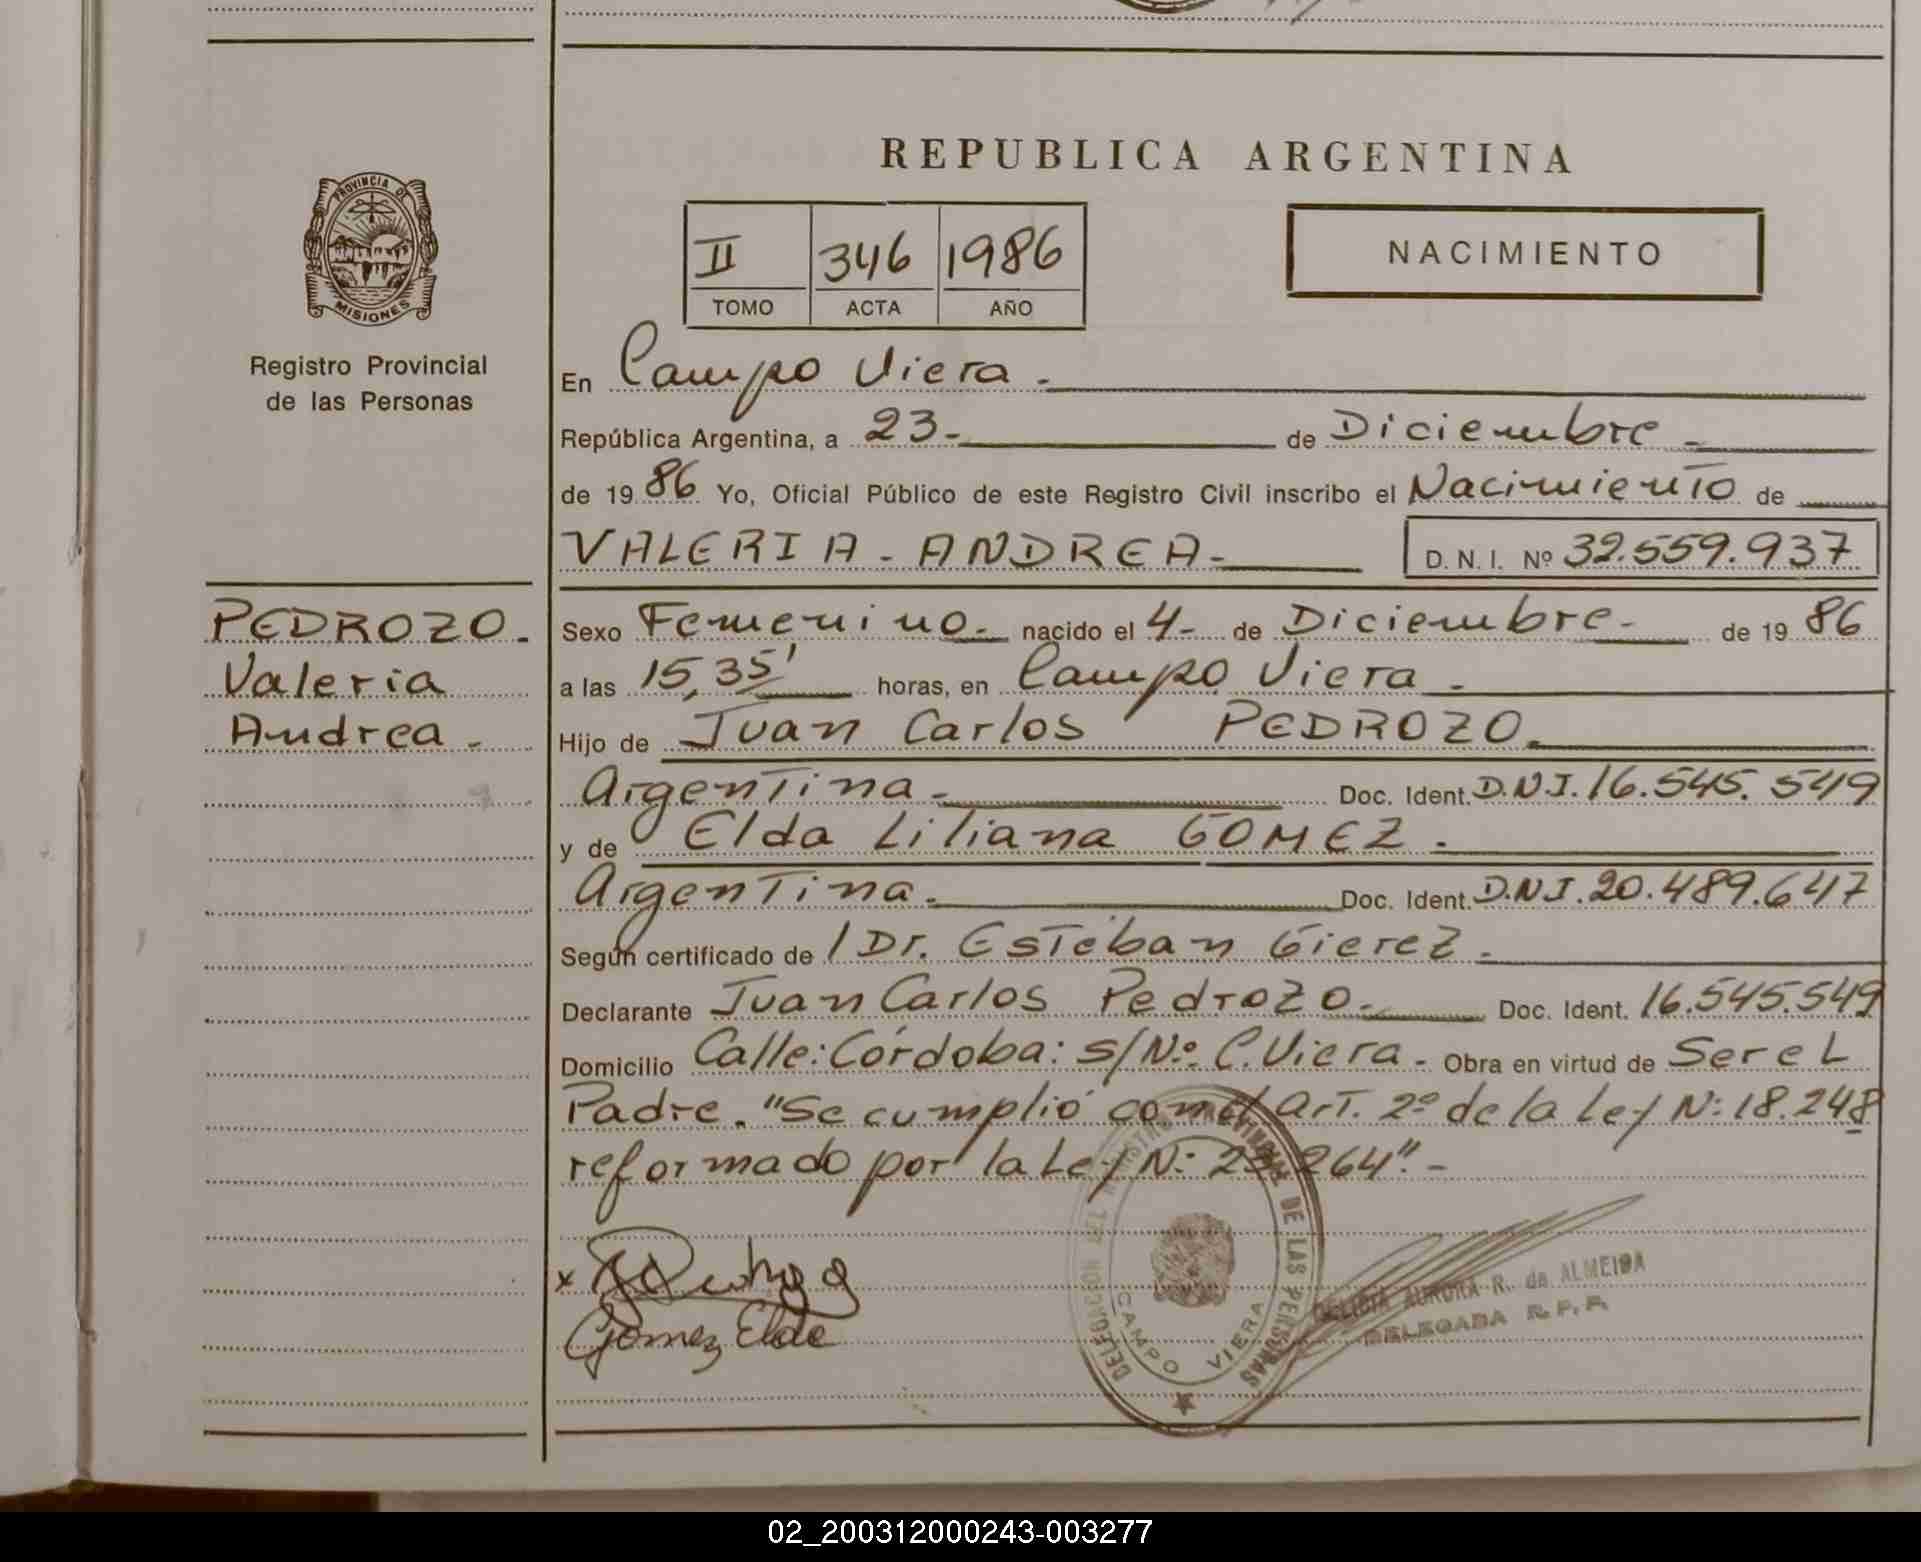 REPUBLICA ARGENTINA
PROVINCIA DE
MISIONES
Registro Provincial
de las Personas
II 346 1986
TOMO ACTA AÑO
NACIMIENTO
En Campo Viera.
República Argentina, a 23- de Diciembre-
de 1986 Yo, Oficial Público de este Registro Civil inscribo el Nacimiento de
VALERIA - ANDREA- D. N. I. Nº 32.559.937
PEDROZO.
Valeria
Andrea.
Sexo Femenino. nacido el 4- de Diciembre- de 1986
a las 15,35' horas, en Campo Viera.
Hijo de Juan Carlos PEDROZO.
Argentina. Doc. Ident. D.N.I. 16.545.549
y de Elda Liliana GOMEZ.
Argentina. Doc. Ident. D.N.I. 20.489.647
Según certificado de / Dr. Esteban Gierez.
Declarante Juan Carlos Pedrozo. Doc. Ident. 16.545.549
Domicilio Calle: Córdoba: s/Nº C. Viera. Obra en virtud de Ser el
Padre. "Se cumplió con el Art. 2º de la Ley N: 18.248
reformado por la Ley N: 23.264".-
x
Gomez Elda
DELEGACION DEL REGISTRO PROVINCIAL DE LAS PERSONAS
CAMPO VIERA
DELICIA AURORA R. de ALMEIDA
DELEGADA R. P. P.
02_200312000243-003277